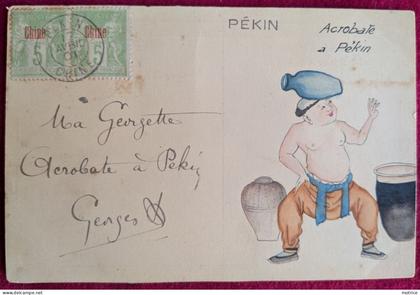 Chine
5
Chine
5
CHINE
PÉKIN
Acrobate
a Pékin
Ma Georgette
Acrobate à Pékin
Georges